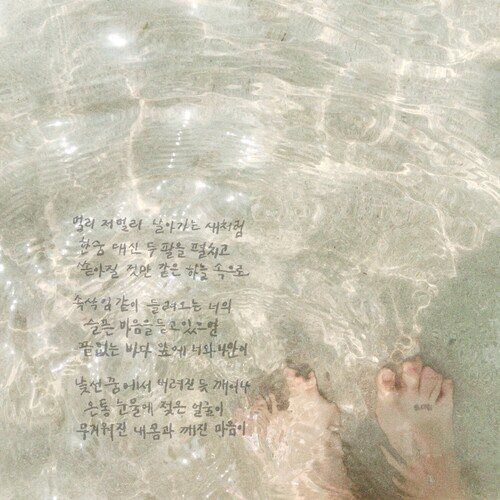 멀리 저 멀리 날아가는 새처럼
한숨 대신 두 팔을 펼치고
쏟아질 것만 같은 하늘 속으로
속삭임 같이 들려오는 너의
슬픈 마음을 듣고 있으면
끝없는 바다 앞에 너와 나만이
낯선 꿈에서 버려진 듯 깨어나
온통 눈물에 젖은 얼굴이
무거워진 내 몸과 깨진 마음이